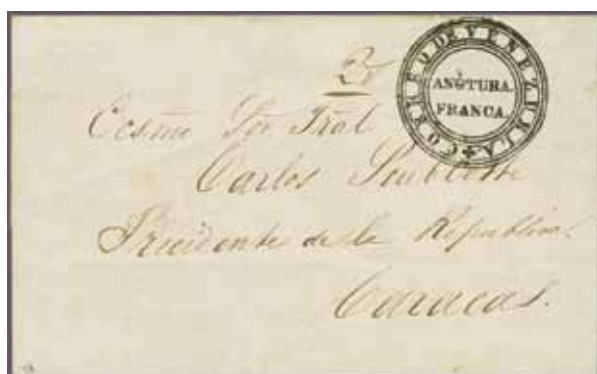 2
CORREO DE VENEZUELA
ANGTURA.
FRANCA.
Exsmo Sor Jral
Carlos Soublette
Precidente de la Republica.
Caracas.